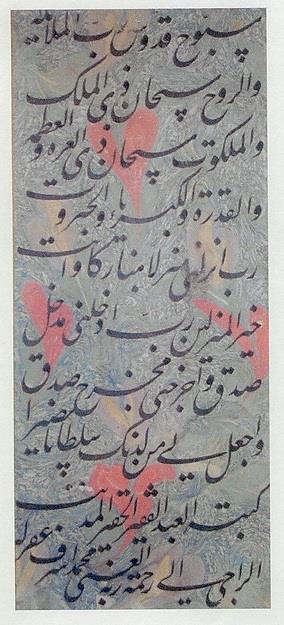 سبوح قدوس رب الملائكة
والروح سبحان ذی الملک
والملكوت سبحان ذی العزة و العظمة
والقدرة والكبرياء والجبروت
رب انزلنی منزلا مباركا وانت
خير المنزلين رب ادخلنی مدخل
صدق واخرجنی مخرج صدق
واجعل لی من لدنک سلطانا نصيرا
كتبه العبد الفقير الحقير المذنب
الراجی الی رحمة ربه الغنی محمد اشرف غفرله